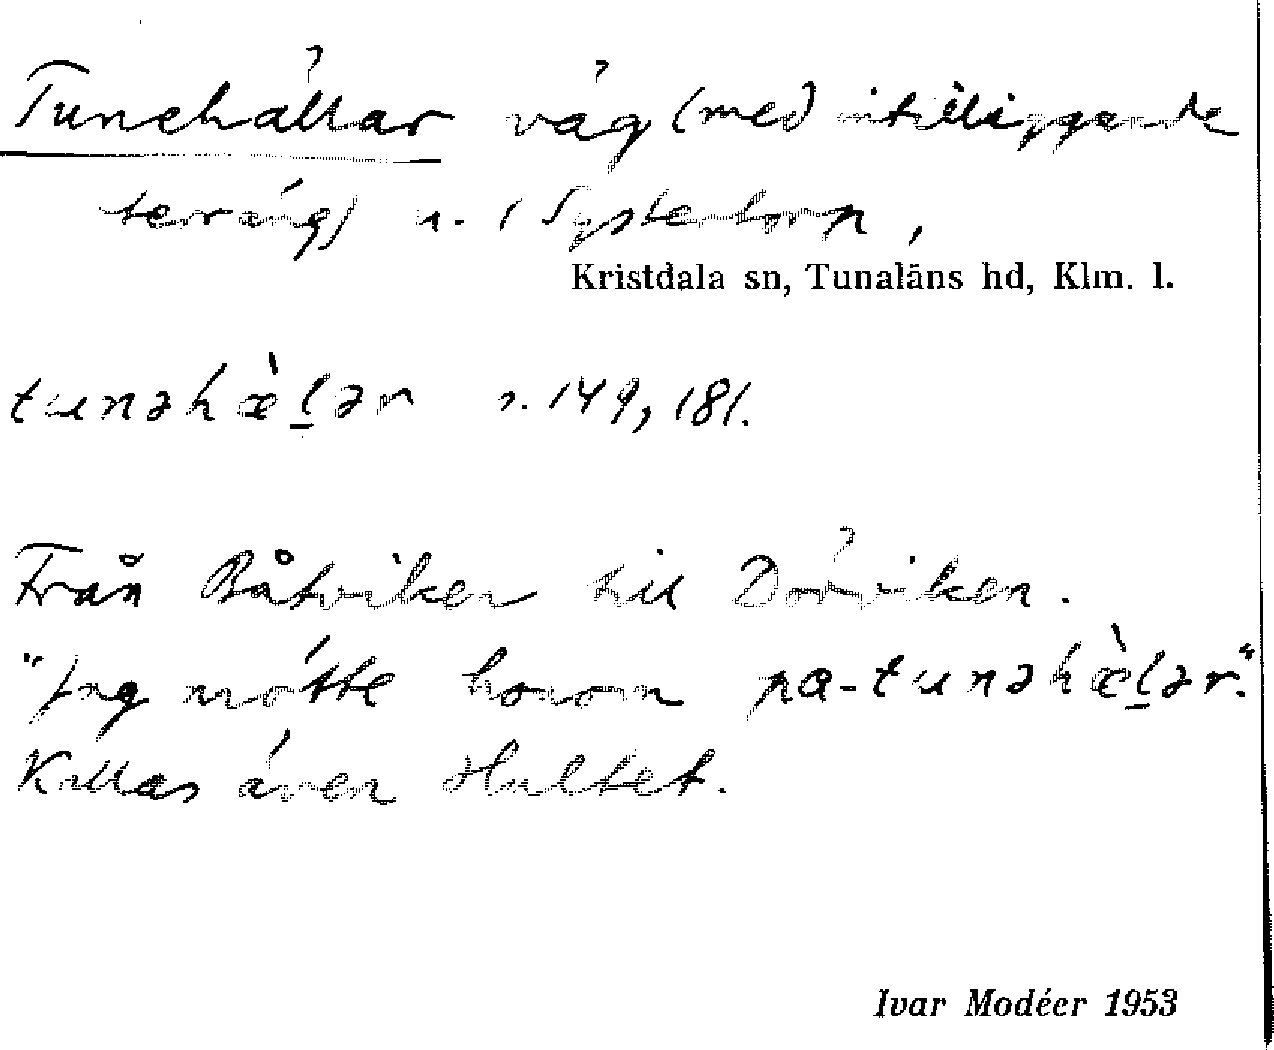 Tunehällar väg (med intilliggande
terräng) n. i Systertorp,
Kristdala sn, Tunaläns hd, Klm. l.
tunəhæ̀l̠ər s. 149, 181.
Från Båtviken till Dörrviken.
"Jag mötte honom pa-tunəhæ̀l̠ər."
Kallas även Hultet.
Ivar Modéer 1953